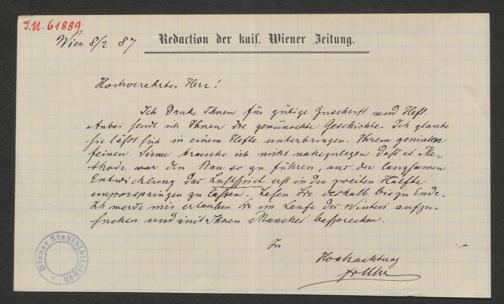 I.N. 61889
Wien 8/2 87
Redaction der kais. Wiener Zeitung.
Hochverehrter Herr!
Ich danke Ihnen für gütige Zuschrift und Heft.
Anbei sende ich Ihnen die gewünschte Geschichte. Ich glaube
sie läßt sich in einem Hefte unterbringen. Ihrem genialen
feinen Sinne brauche ich nicht nahezulegen daß es Me-
thode war den Bau so zu führen, aus der langsamen
Entwicklung das Lustspiel erst in der zweiten Hälfte
emporspringen zu lassen. Lesen Sie deshalb bis zu Ende.
Ich werde mir erlauben Sie im Laufe des Winters aufzu-
suchen und mit Ihnen Manches besprechen.
In
Hochachtung
Wiener Stadtbibliothek